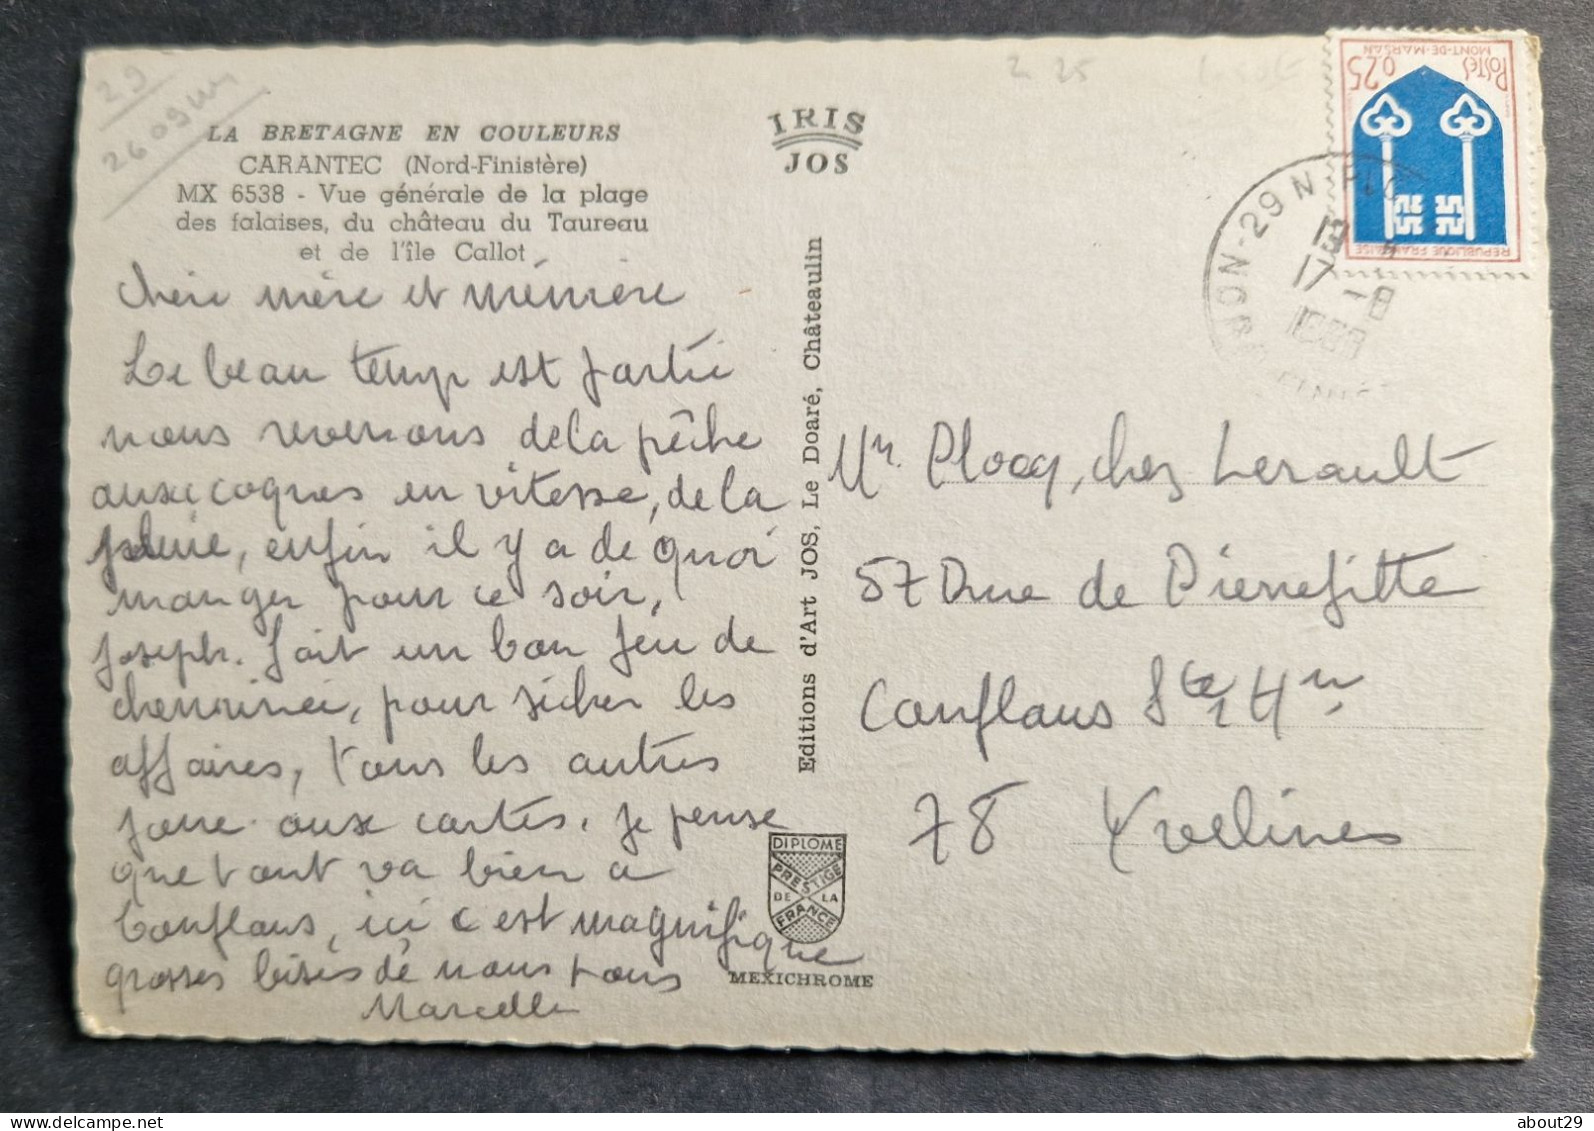 29
2609
LA BRETAGNE EN COULEURS
CARANTEC (Nord-Finistère)
MX 6538 - Vue générale de la plage
des falaises, du château du Taureau
et de l'île Callot
IRIS
JOS
Chère mère et mémère
Le beau temps est partie
nous revenons de la pêche
aux coques en vitesse, de la
pluie, enfin il y a de quoi
manger pour ce soir,
Joseph. fait un bon feu de
cheminée, pour sécher les
affaires, tous les autres
joue aux cartes. je pense
que tout va bien a
Conflans, ici c'est magnifique
grosses bises de nous tous
Marcelle
Editions d'Art JOS, Le Doaré, Châteaulin
DIPLOME
PRESTIGE
DE LA
FRANCE
MEXICHROME
POSTES 0,25
MONT-DE-MARSAN
REPUBLIQUE FRANÇAISE
29 N
17 -8
Mr. Plocq, chez Lerault
57 D rue de Pierrefitte
Conflans Ste Hne
78 Yvelines
delcampe.net
about29